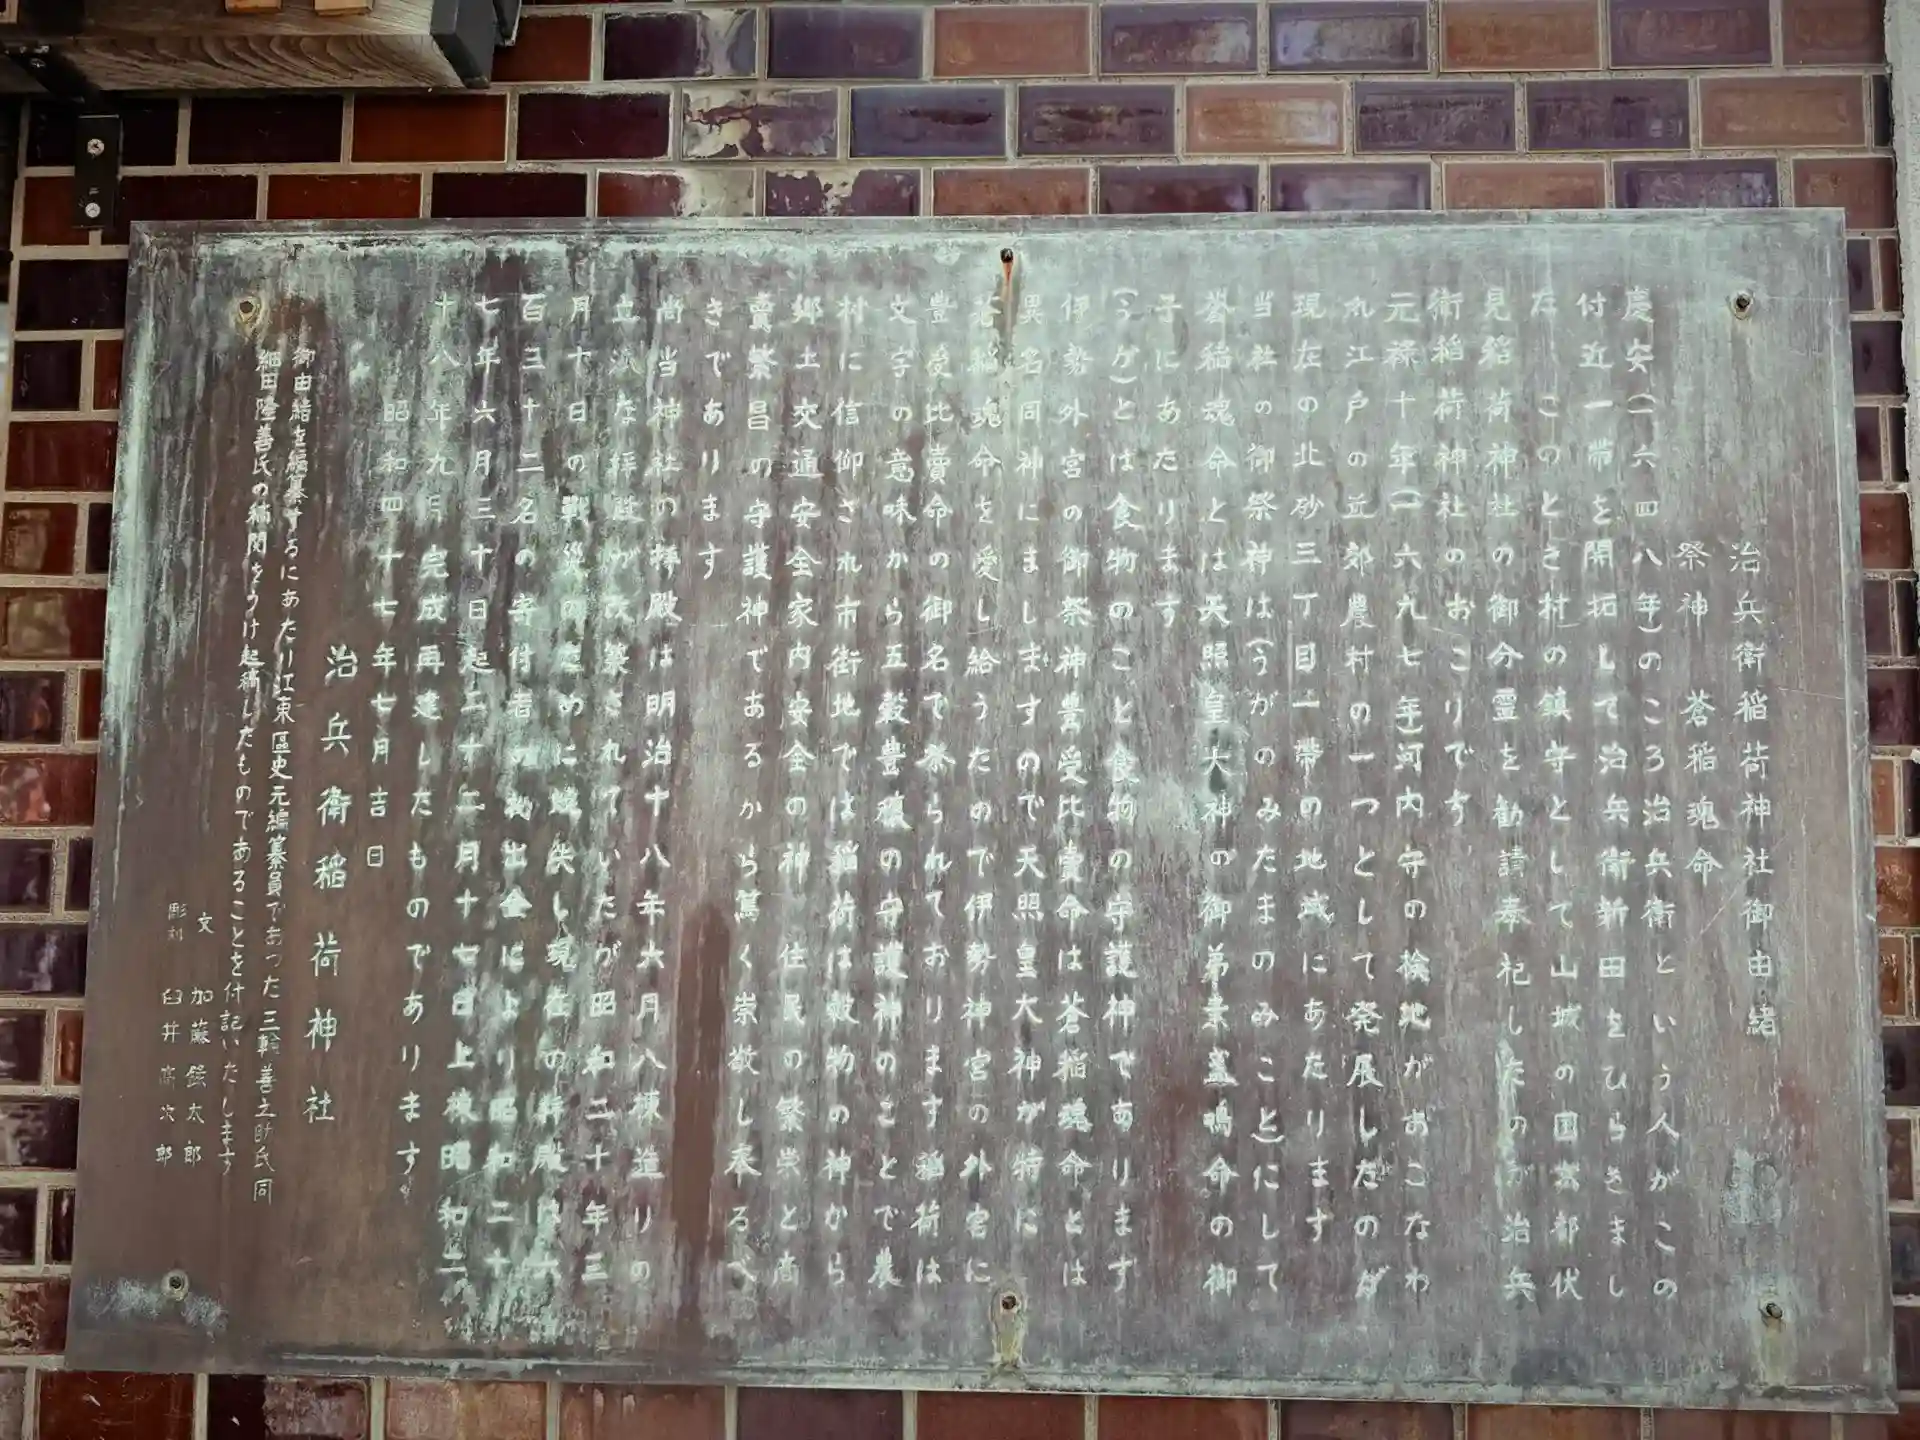 治兵衛稲荷神社御由緒
祭神　蒼稲魂命
慶安(一六四八年)のころ治兵衛という人がこの
付近一帯を開拓して治兵衛新田をひらきまし
た　このとき村の鎮守として山城の国京都伏
見稲荷神社の御分霊を勧請奉祀したのが治兵
衛稲荷神社のおこりです
元禄十年(一六九七年)河内守の検地がおこなわ
れ江戸の近郊農村の一つとして発展したのが
現在の北砂三丁目一帯の地域にあたります
当社の御祭神は(うがのみたまのみこと)にして
蒼稲魂命とは天照皇大神の御弟素盞嗚命の御
子にあたります
(うケ)とは食物のこと食物の守護神であります
伊勢外宮の御祭神豊受比賣命は蒼稲魂命とは
異名同神にましますので天照皇大神が特に
蒼稲魂命を愛し給うたので伊勢神宮の外宮に
豊受比賣命の御名で祭られております稲荷は
文字の意味から五穀豊穣の守護神のことで農
村に信仰され市街地では稲荷は蚊物の神から
郷土交通安全家内安全の神　住民の繁栄と商
賣繁昌の守護神であるから篤く崇敬し奉るべ
きであります
尚当神社の拝殿は明治十八年六月八棟造りの
立派な拝殿が改築されていたが昭和二十年三
月十日の戦災のために焼失し現在の拝殿は六
百三十二名の寄付者の拠出金により昭和二十
七年六月三十日起工十二月十七日上棟昭和二
十八年九月完成再建したものであります
昭和四十七年七月吉日
治兵衛稲荷神社
御由緒を編纂するにあたり江東區史元編纂員であった三輪善之助氏同
細田隆善氏の稿閲をうけ起稿したものであることを付記いたします
文　加藤鉄太郎
彫刻　臼井高次郎